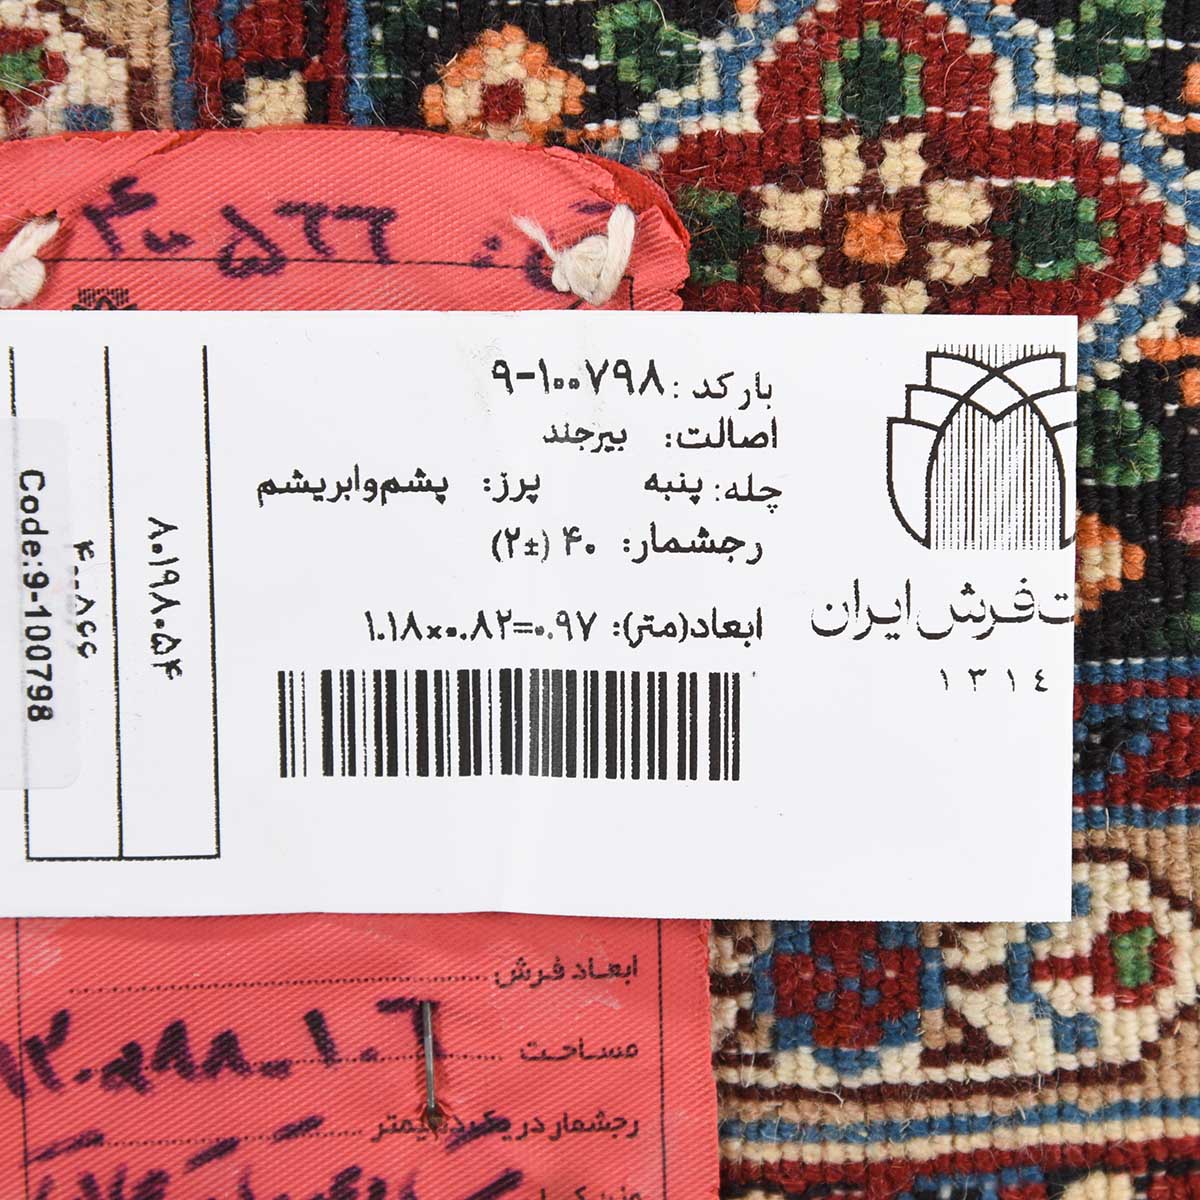 بارکد: ۹-۱۰۰۷۹۸
اصالت: بیرجند
چله: پنبه پرز: پشم‌وابریشم
رجشمار: ۴۰ (±۲)
ابعاد(متر): ۱.۱۸×۰.۸۲=۰.۹۷
ت فرش ایران
۱۳۱٤
۸۰۱۹۸۰۵۴
Code:9-100798
ابعاد فرش
مساحت
رجشمار در یک دسیمتر